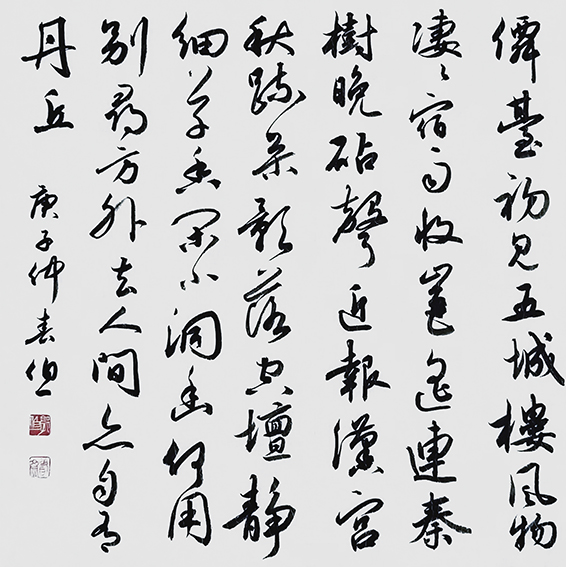 僊臺初見五城樓風物
淒〻宿雨收山色遥連秦
樹晚砧聲近報漢宮
秋疏松影落空壇静
細草香閑小洞幽何用
别尋方外去人間亦自有
丹丘
庚子仲春